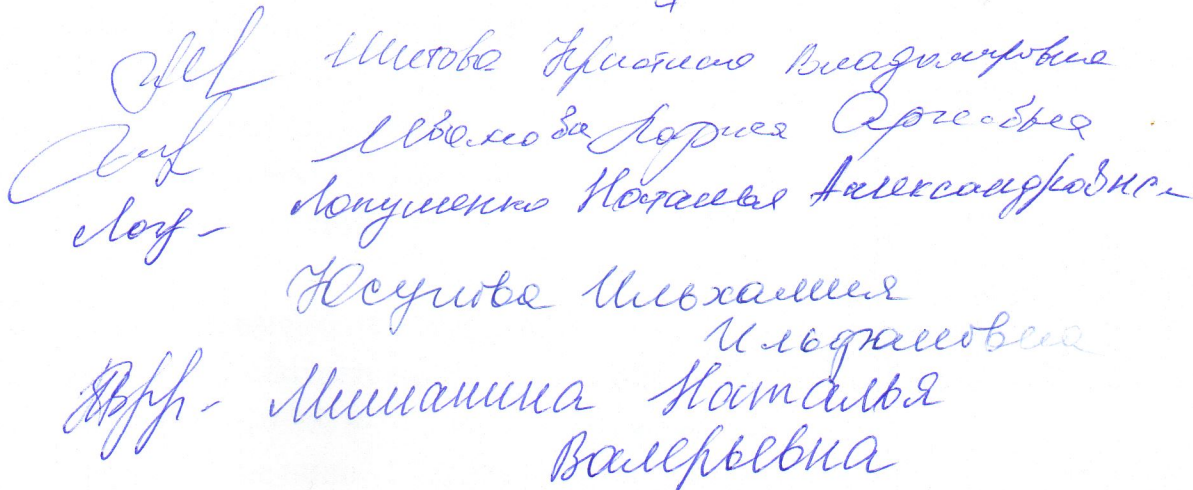 Шитова Кристина Владимировна
Иванова Лариса Сергеевна
Лопушенко Наталья Александровна
Юсупова Ильхамия
Ильфатовна
Мишанина Наталья
Валерьевна